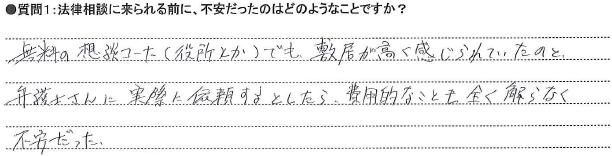 ●質問1：法律相談に来られる前に、不安だったのはどのようなことですか？
無料の想談コーナー（役所とか）でも、敷居が高く感じられていたのと、
弁護士さんに実際に依頼するとしたら、費用的なことも全く解らなく
不安だった。